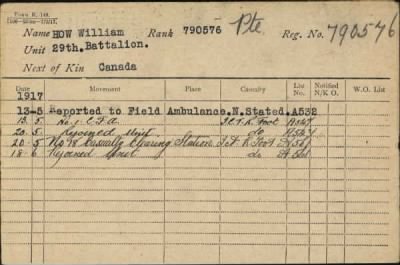 Form R.
Name HOW William Rank 790576 Pte. Reg. No. 790576
Unit 29th. Battalion.
Next of Kin Canada
Date Movement Place Casualty List No. Notified N/K O. W.O. List
1917
13-5 Reported to Field Ambulance. N. Stated. A532
13. 5 No. 1. C.F.A. I.C.T. R. Foot
20. 5 Rejoined Unit do
20. 5 No 18 Casualty Clearing Station I.C.T. R. Foot
18. 6 Rejoined Unit do